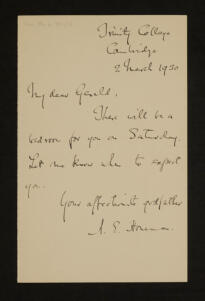 Trinity College
Cambridge
2 March 1930
My dear Gerald,
There will be a
bedroom for you on Saturday.
Let me know when to expect
you.
Your affectionate godfather
A. E. Housman.